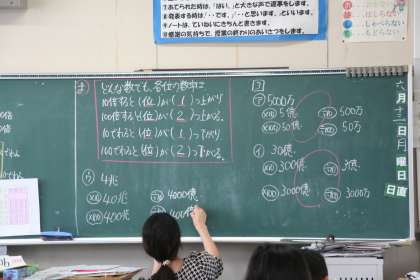 ⑦あてられた時は、「はい」と大きな声で返事をします。
⑧発表する時は「・・です。」「・・と思います。」といいます。
⑨ノートは、ていねいにきちんと書きます。
⑩感謝の気持ちで、授業の終わりのあいさつをします。
ま
どんな数でも、各位の数字は
10倍すると(位)が(1)つ上がり
100倍すると(位)が(2)つ上がる。
10でわると(位)が(1)つ下がり
100でわると(位)が(2)つ下がる。
ア 5000万
×10 5億
÷10 500万
×100 50億
÷100 50万
イ 30億
×10 300億
÷10 3億
×100 3000億
÷100 3000万
ウ 4兆
×10 40兆
÷10 4000億
×100 400兆
400億
月
日
月
曜
日
日直